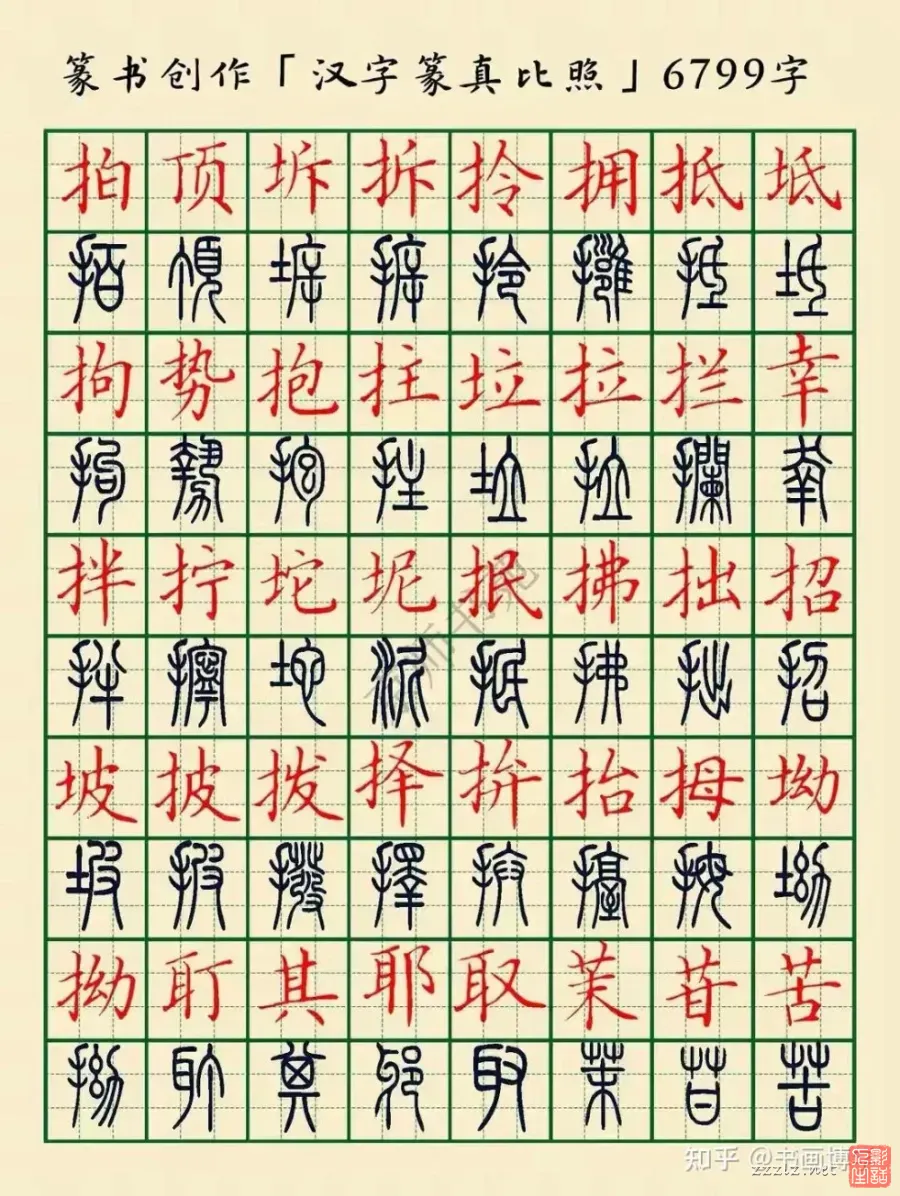 篆书创作「汉字篆真比照」6799字
拍顶坼拆拎拥抵坻
拍頂坼拆拎擁抵坻
拘势抱拄垃拉拦幸
拘勢抱拄垃拉攔幸
拌拧坨坭抿拂拙招
拌擰坨泥抿拂拙招
坡披拨择拚抬拇坳
坡披撥擇拚擡拇坳
拗耵其耶取茉苷苦
拗耵其耶取茉苷苦
知乎 @书画博